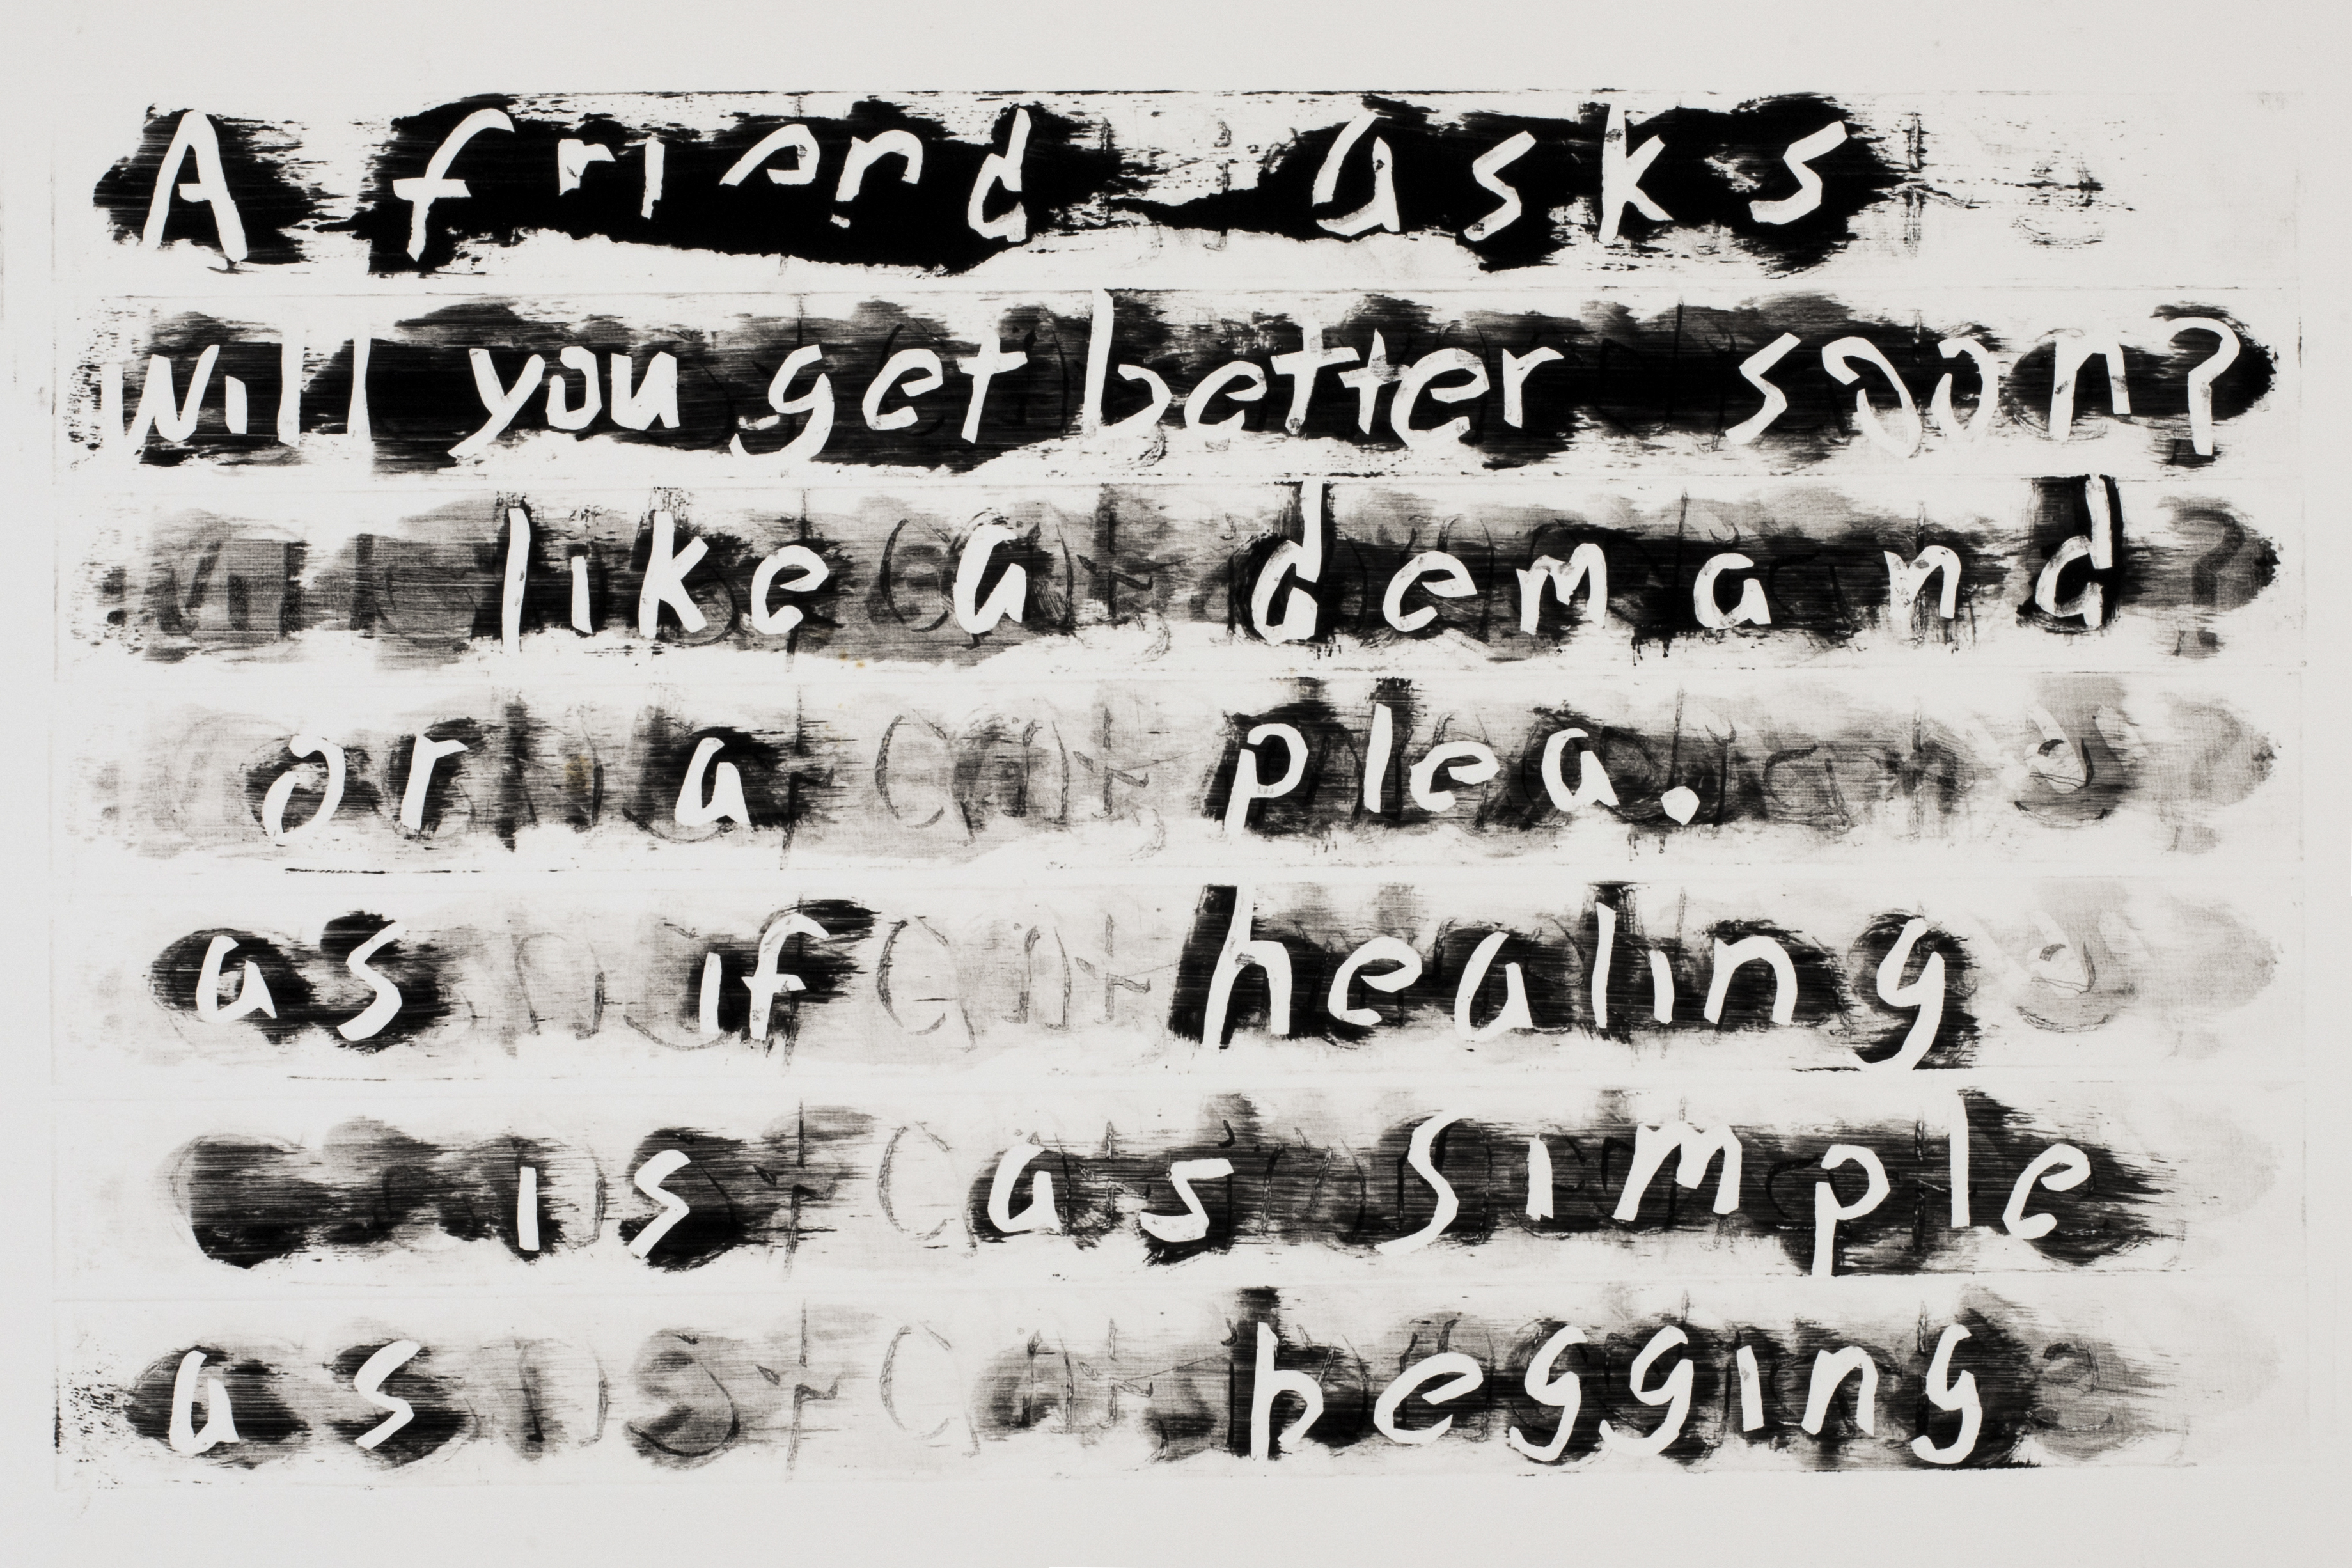 A friend asks
will you get better soon?
like a demand
or a plea.
as if healing
is as simple
as begging